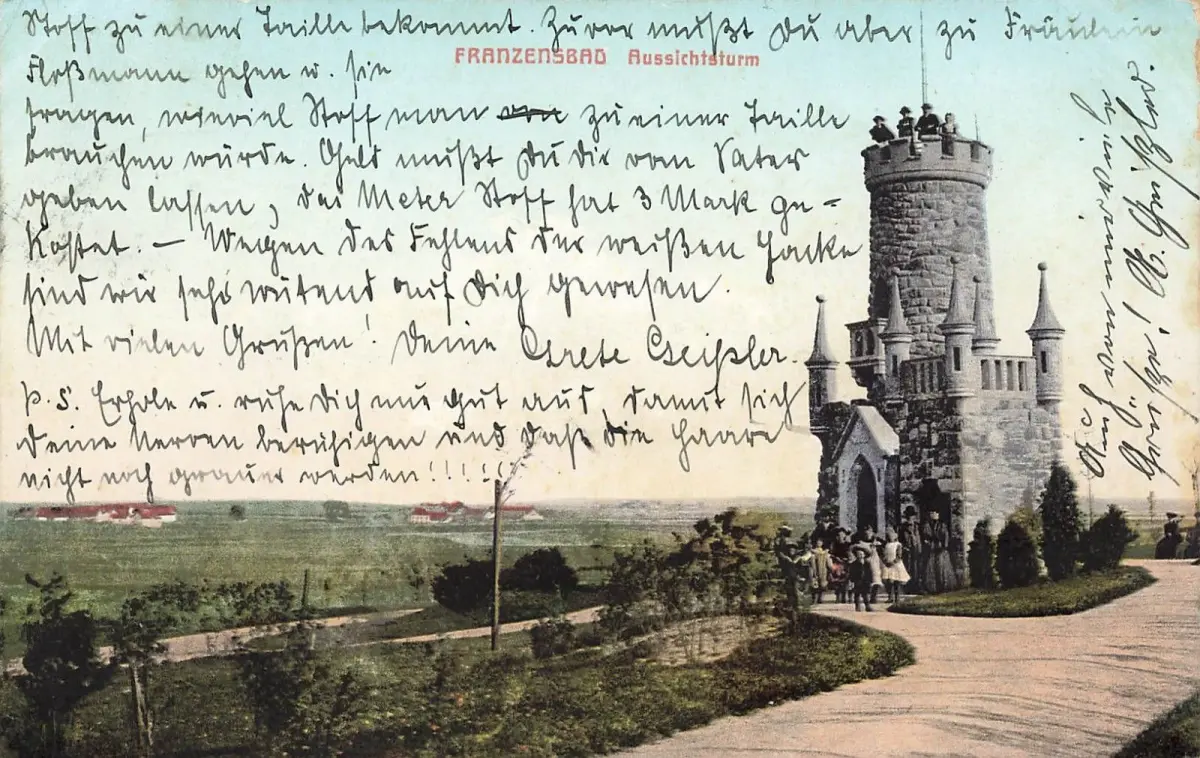 Stoff zu einer Taille bekommt. Zuvor mußt Du aber zu Fräulein
FRANZENSBAD Aussichtsturm
Floßmann gehen u. sie
fragen, wieviel Stoff man zu einer Taille
brauchen würde. Geld mußt Du Dir vom Vater
geben lassen, das Meter Stoff hat 3 Mark ge-
kostet. — Wegen des Fehlens der weißen Jacke
sind wir sehr wütend auf Dich gewesen.
Mit vielen Grüßen! Deine Grete Geißler.
P. S. Erhole u. ruhe Dich nur gut aus, damit sich
Deine Nerven beruhigen und daß die Haare
nicht noch grauer werden!!!!!